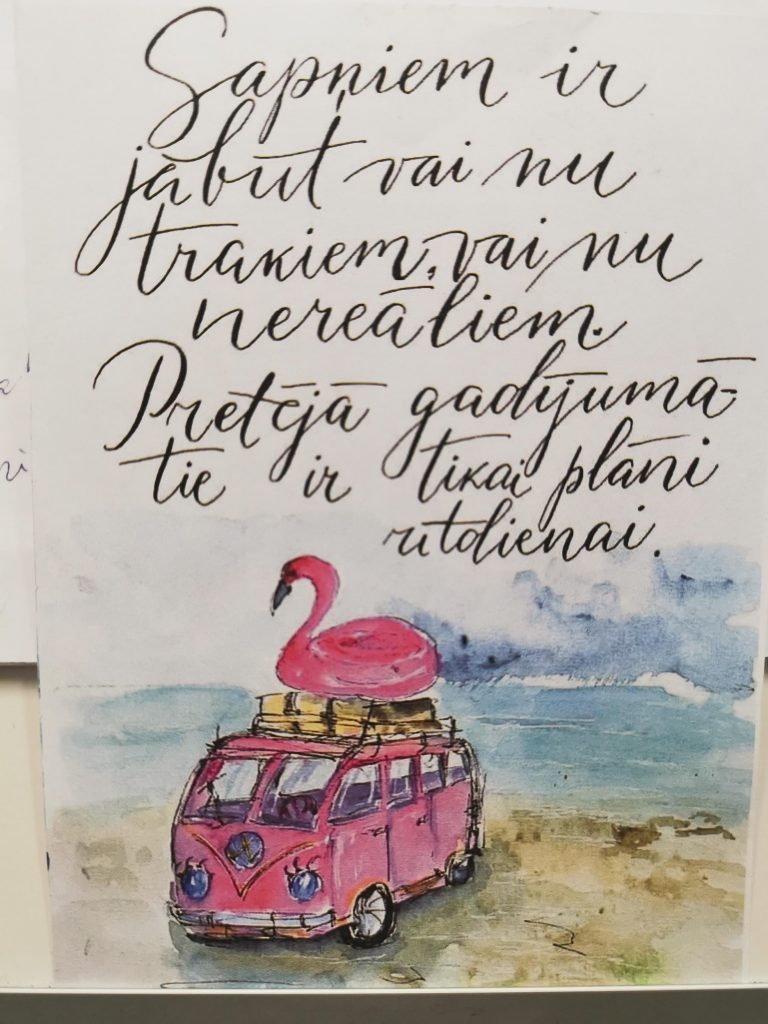 Sapņiem ir
jābūt vai nu
trakiem, vai nu
nereāliem.
Pretējā gadījumā
tie ir tikai plāni
rītdienai.